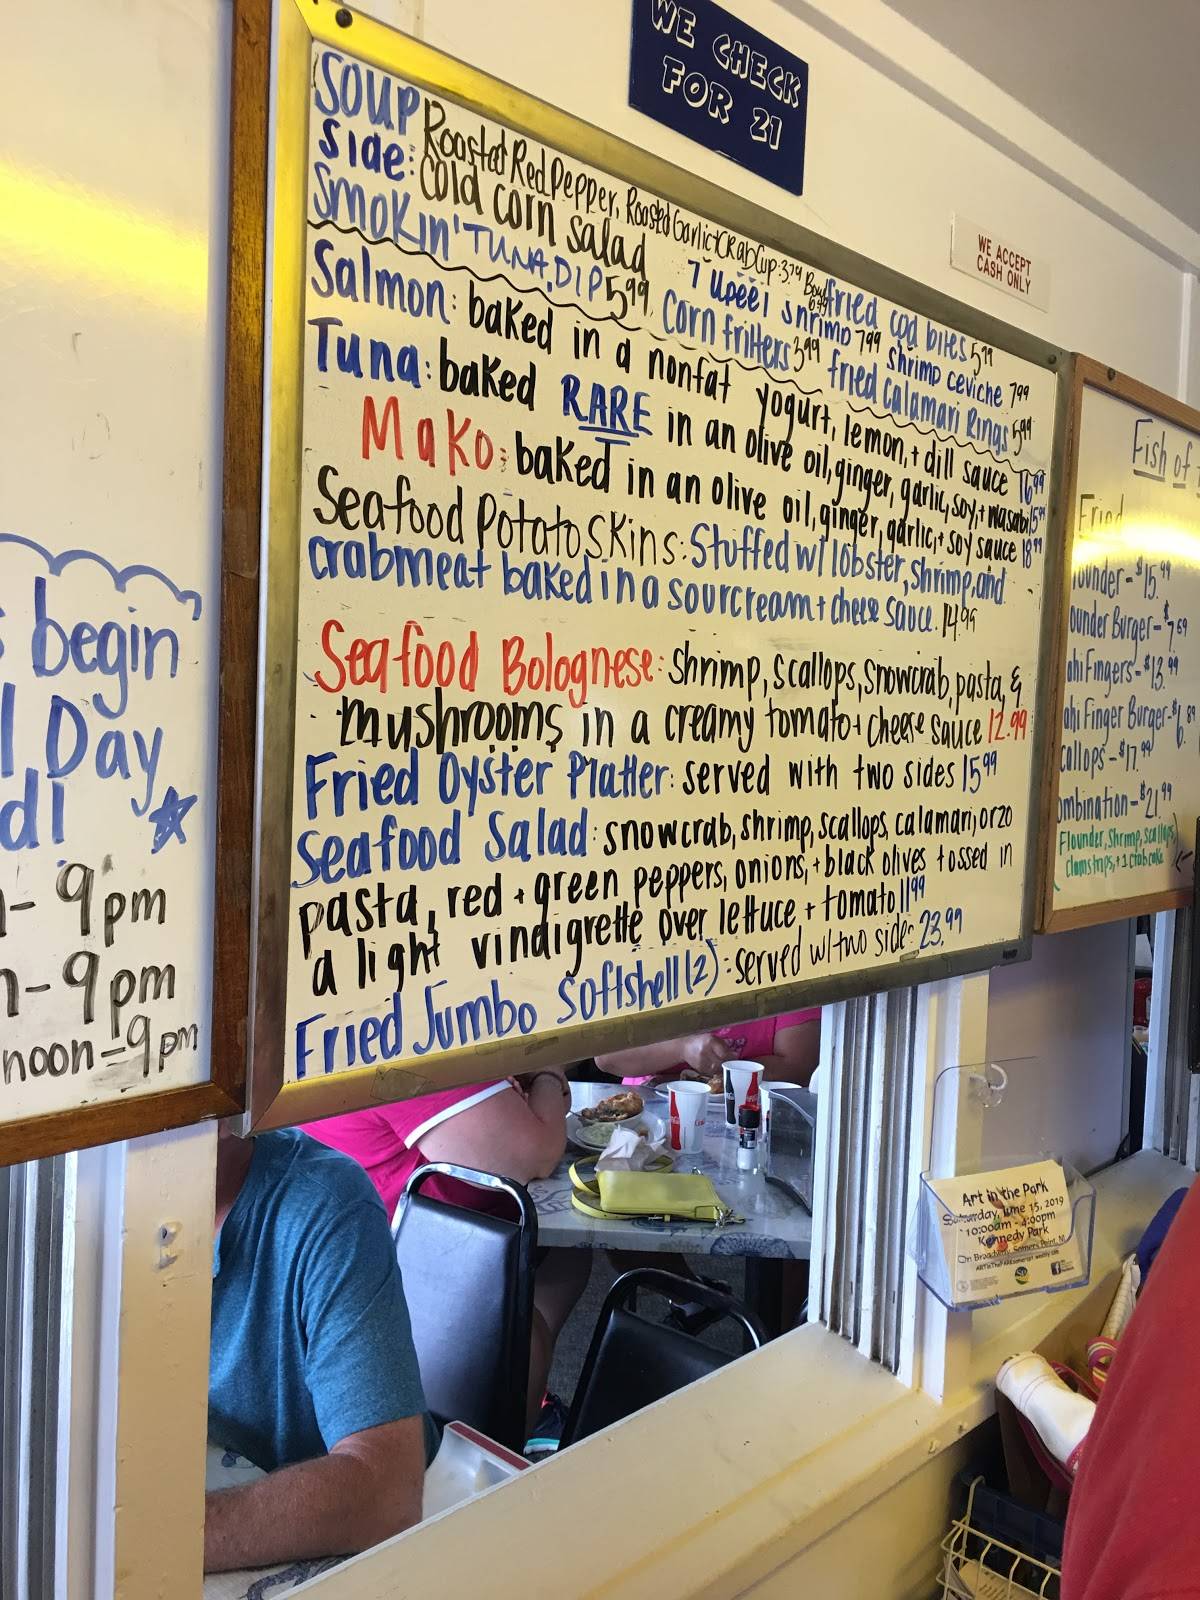 WE CHECK
FOR 21
WE ACCEPT
CASH ONLY
SOUP Roasted Red Pepper, Roasted Garlic + Crab Cup: 3.79 Bowl
side: cold corn salad
SMOKIN' TUNA DIP 5.99
7 upeel shrimp 7.99
corn fritters 3.99
fried cod bites 5.99
shrimp ceviche 7.99
fried Calamari Rings 5.99
Salmon: baked in a nonfat yogurt, lemon, + dill sauce 16.99
Tuna: baked RARE in an olive oil, ginger, garlic, soy, + wasabi 15.99
Mako: baked in an olive oil, ginger, garlic, + soy sauce 18.99
Seafood Potato Skins: Stuffed w/ lobster, shrimp, and
crabmeat baked in a sour cream + cheese sauce. 14.99
Seafood Bolognese: shrimp, scallops, snowcrab, pasta, &
mushrooms in a creamy tomato + cheese sauce 12.99
Fried Oyster Platter: served with two sides 15.99
Seafood Salad: snowcrab, shrimp, scallops, calamari, orzo
pasta, red + green peppers, onions, + black olives tossed in
a light vinaigrette over lettuce + tomato 11.99
Fried Jumbo Softshell (2): served w/ two sides 23.99
begin
Day
9pm
9pm
noon - 9pm
Fish of
Fried
ounder - $15.99
ounder Burger - $7.69
ahi Fingers - $13.99
ahi Finger Burger - $6.89
callops - $17.99
ombination - $21.99
Flounder, shrimp, scallops,
clamstrips, + 1 crabcake
Art in the Park
Saturday, June 15, 2019
10:00am - 4:00pm
Kennedy Park
On Broadway, Somers Point, NJ